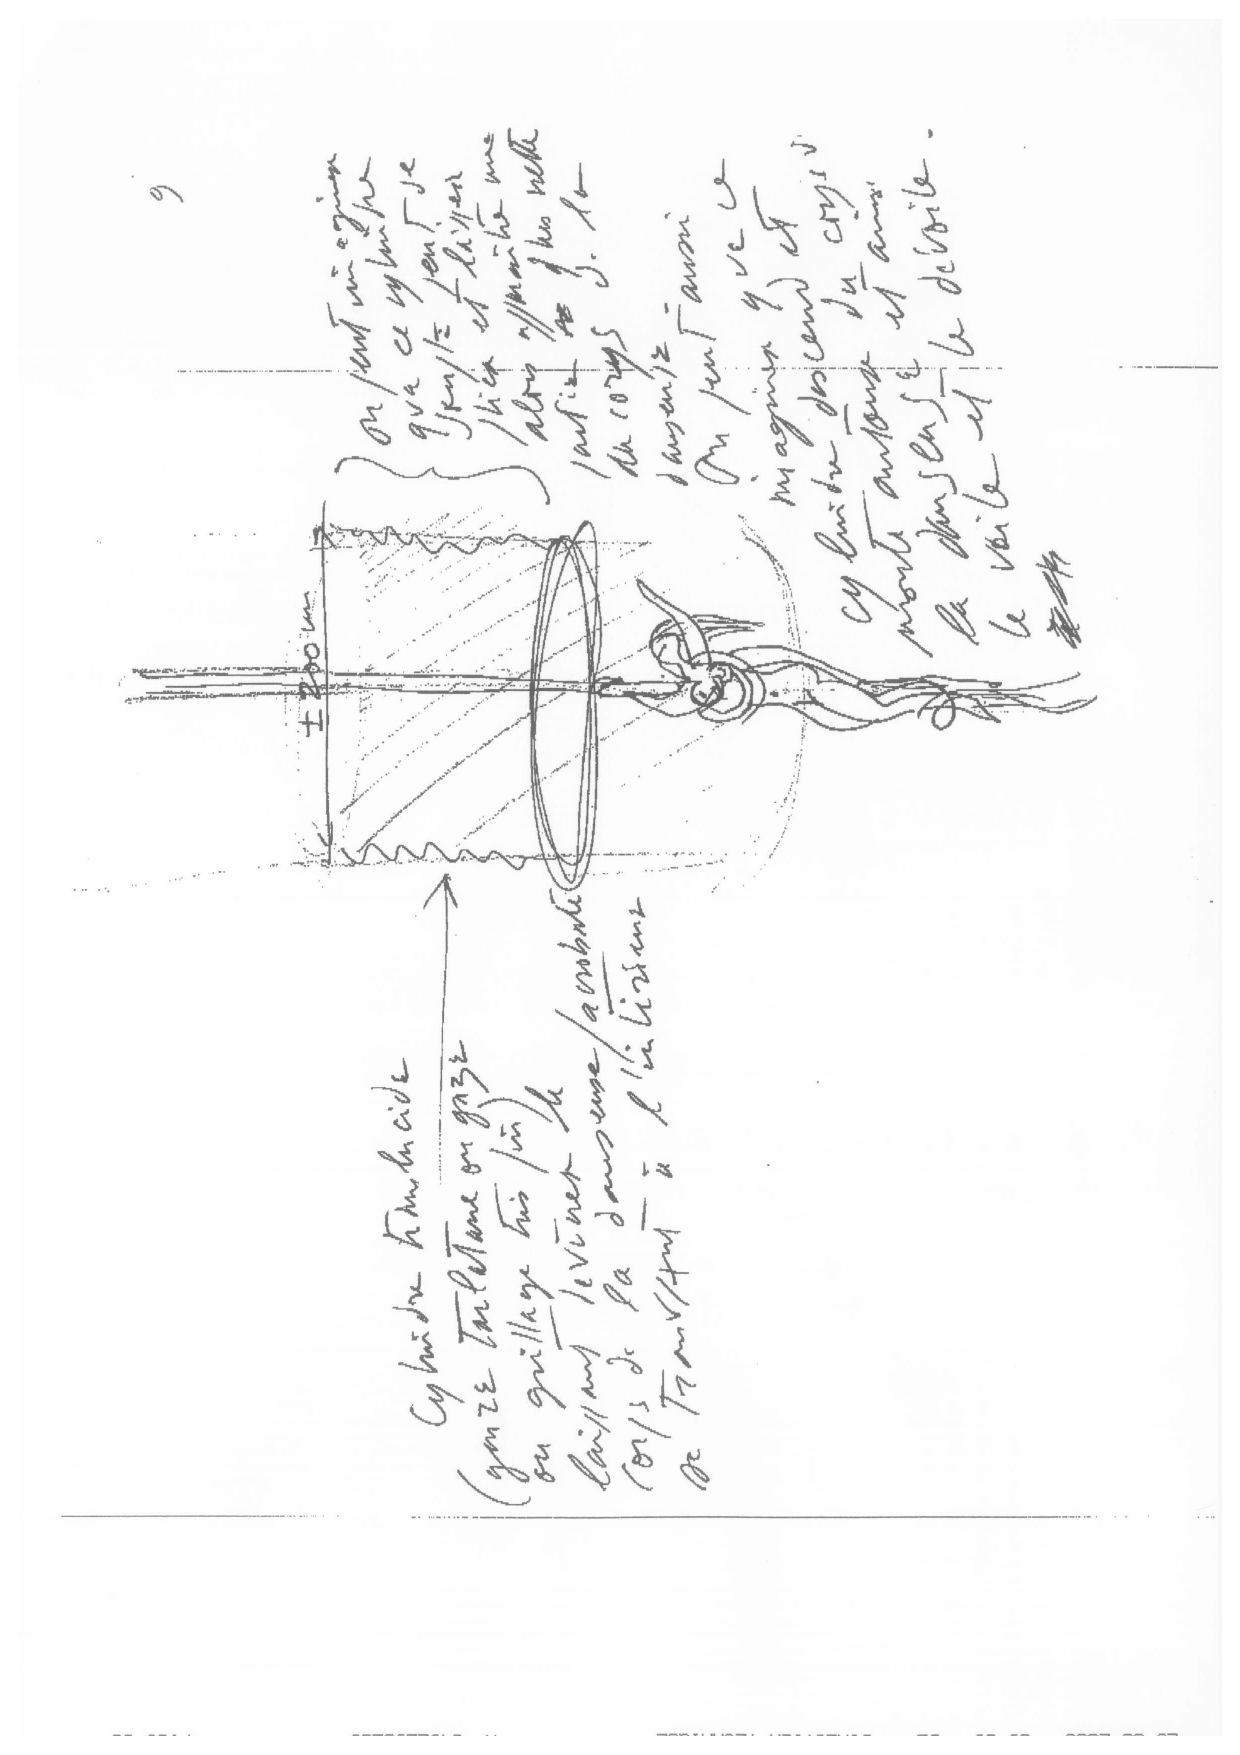 9
± 200 cm
On peut imaginer
que ce cylindre
peut se
et laisser
alors apparaître une
partie plus nette
du corps d. la
danseuse
On peut aussi
imaginer que ce
cylindre descend et
monte autour du corps d
la danseuse et ainsi
le voile et le dévoile.
Cylindre translucide
(genre Tarlatane ou gaze
ou grillage très fin)
laissant deviner le
corps de la danseuse/acrobate
se trouvant à l'intérieur